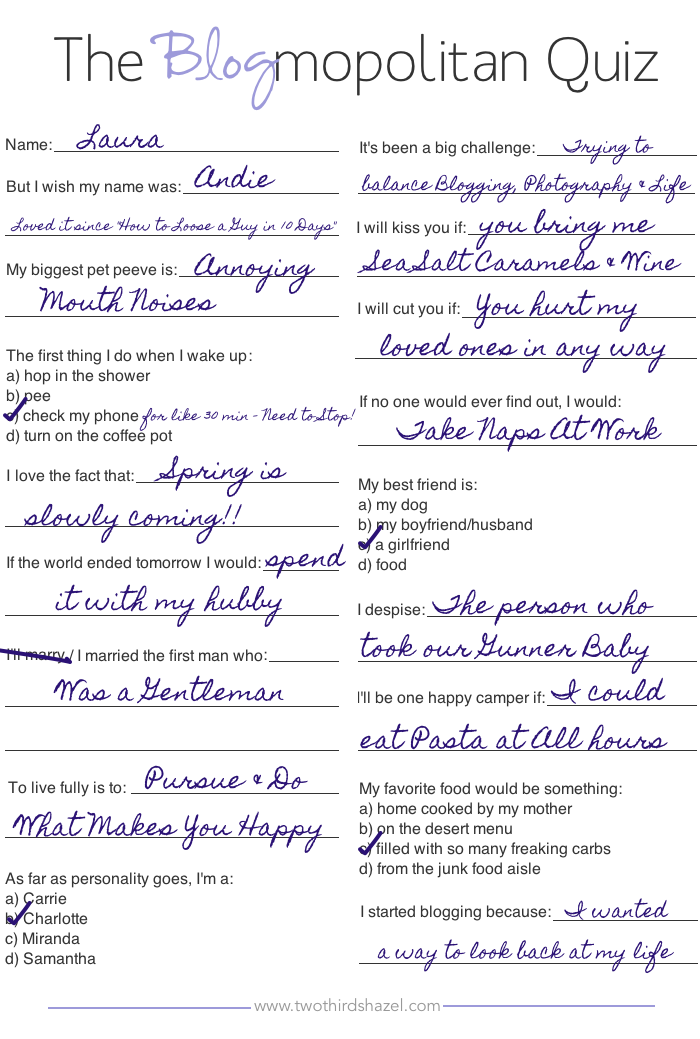 The Blogmopolitan Quiz
Name: Laura
But I wish my name was: Andie
Loved it since "How to Loose a Guy in 10 Days"
My biggest pet peeve is: Annoying
Mouth Noises
The first thing I do when I wake up:
a) hop in the shower
b) pee
c) check my phone for like 30 min - Need to Stop!
d) turn on the coffee pot
I love the fact that: Spring is
slowly coming!!
If the world ended tomorrow I would: spend
it with my hubby
I'll marry / I married the first man who:
Was a Gentleman
To live fully is to: Pursue & Do
What Makes You Happy
As far as personality goes, I'm a:
a) Carrie
b) Charlotte
c) Miranda
d) Samantha
It's been a big challenge: Trying to
balance Blogging, Photography & Life
I will kiss you if: you bring me
Sea Salt Caramels & Wine
I will cut you if: You hurt my
loved ones in any way
If no one would ever find out, I would:
Take Naps At Work
My best friend is:
a) my dog
b) my boyfriend/husband
c) a girlfriend
d) food
I despise: The person who
took our Gunner Baby
I'll be one happy camper if: I could
eat Pasta at All hours
My favorite food would be something:
a) home cooked by my mother
b) on the desert menu
c) filled with so many freaking carbs
d) from the junk food aisle
I started blogging because: I wanted
a way to look back at my life
www.twothirdshazel.com